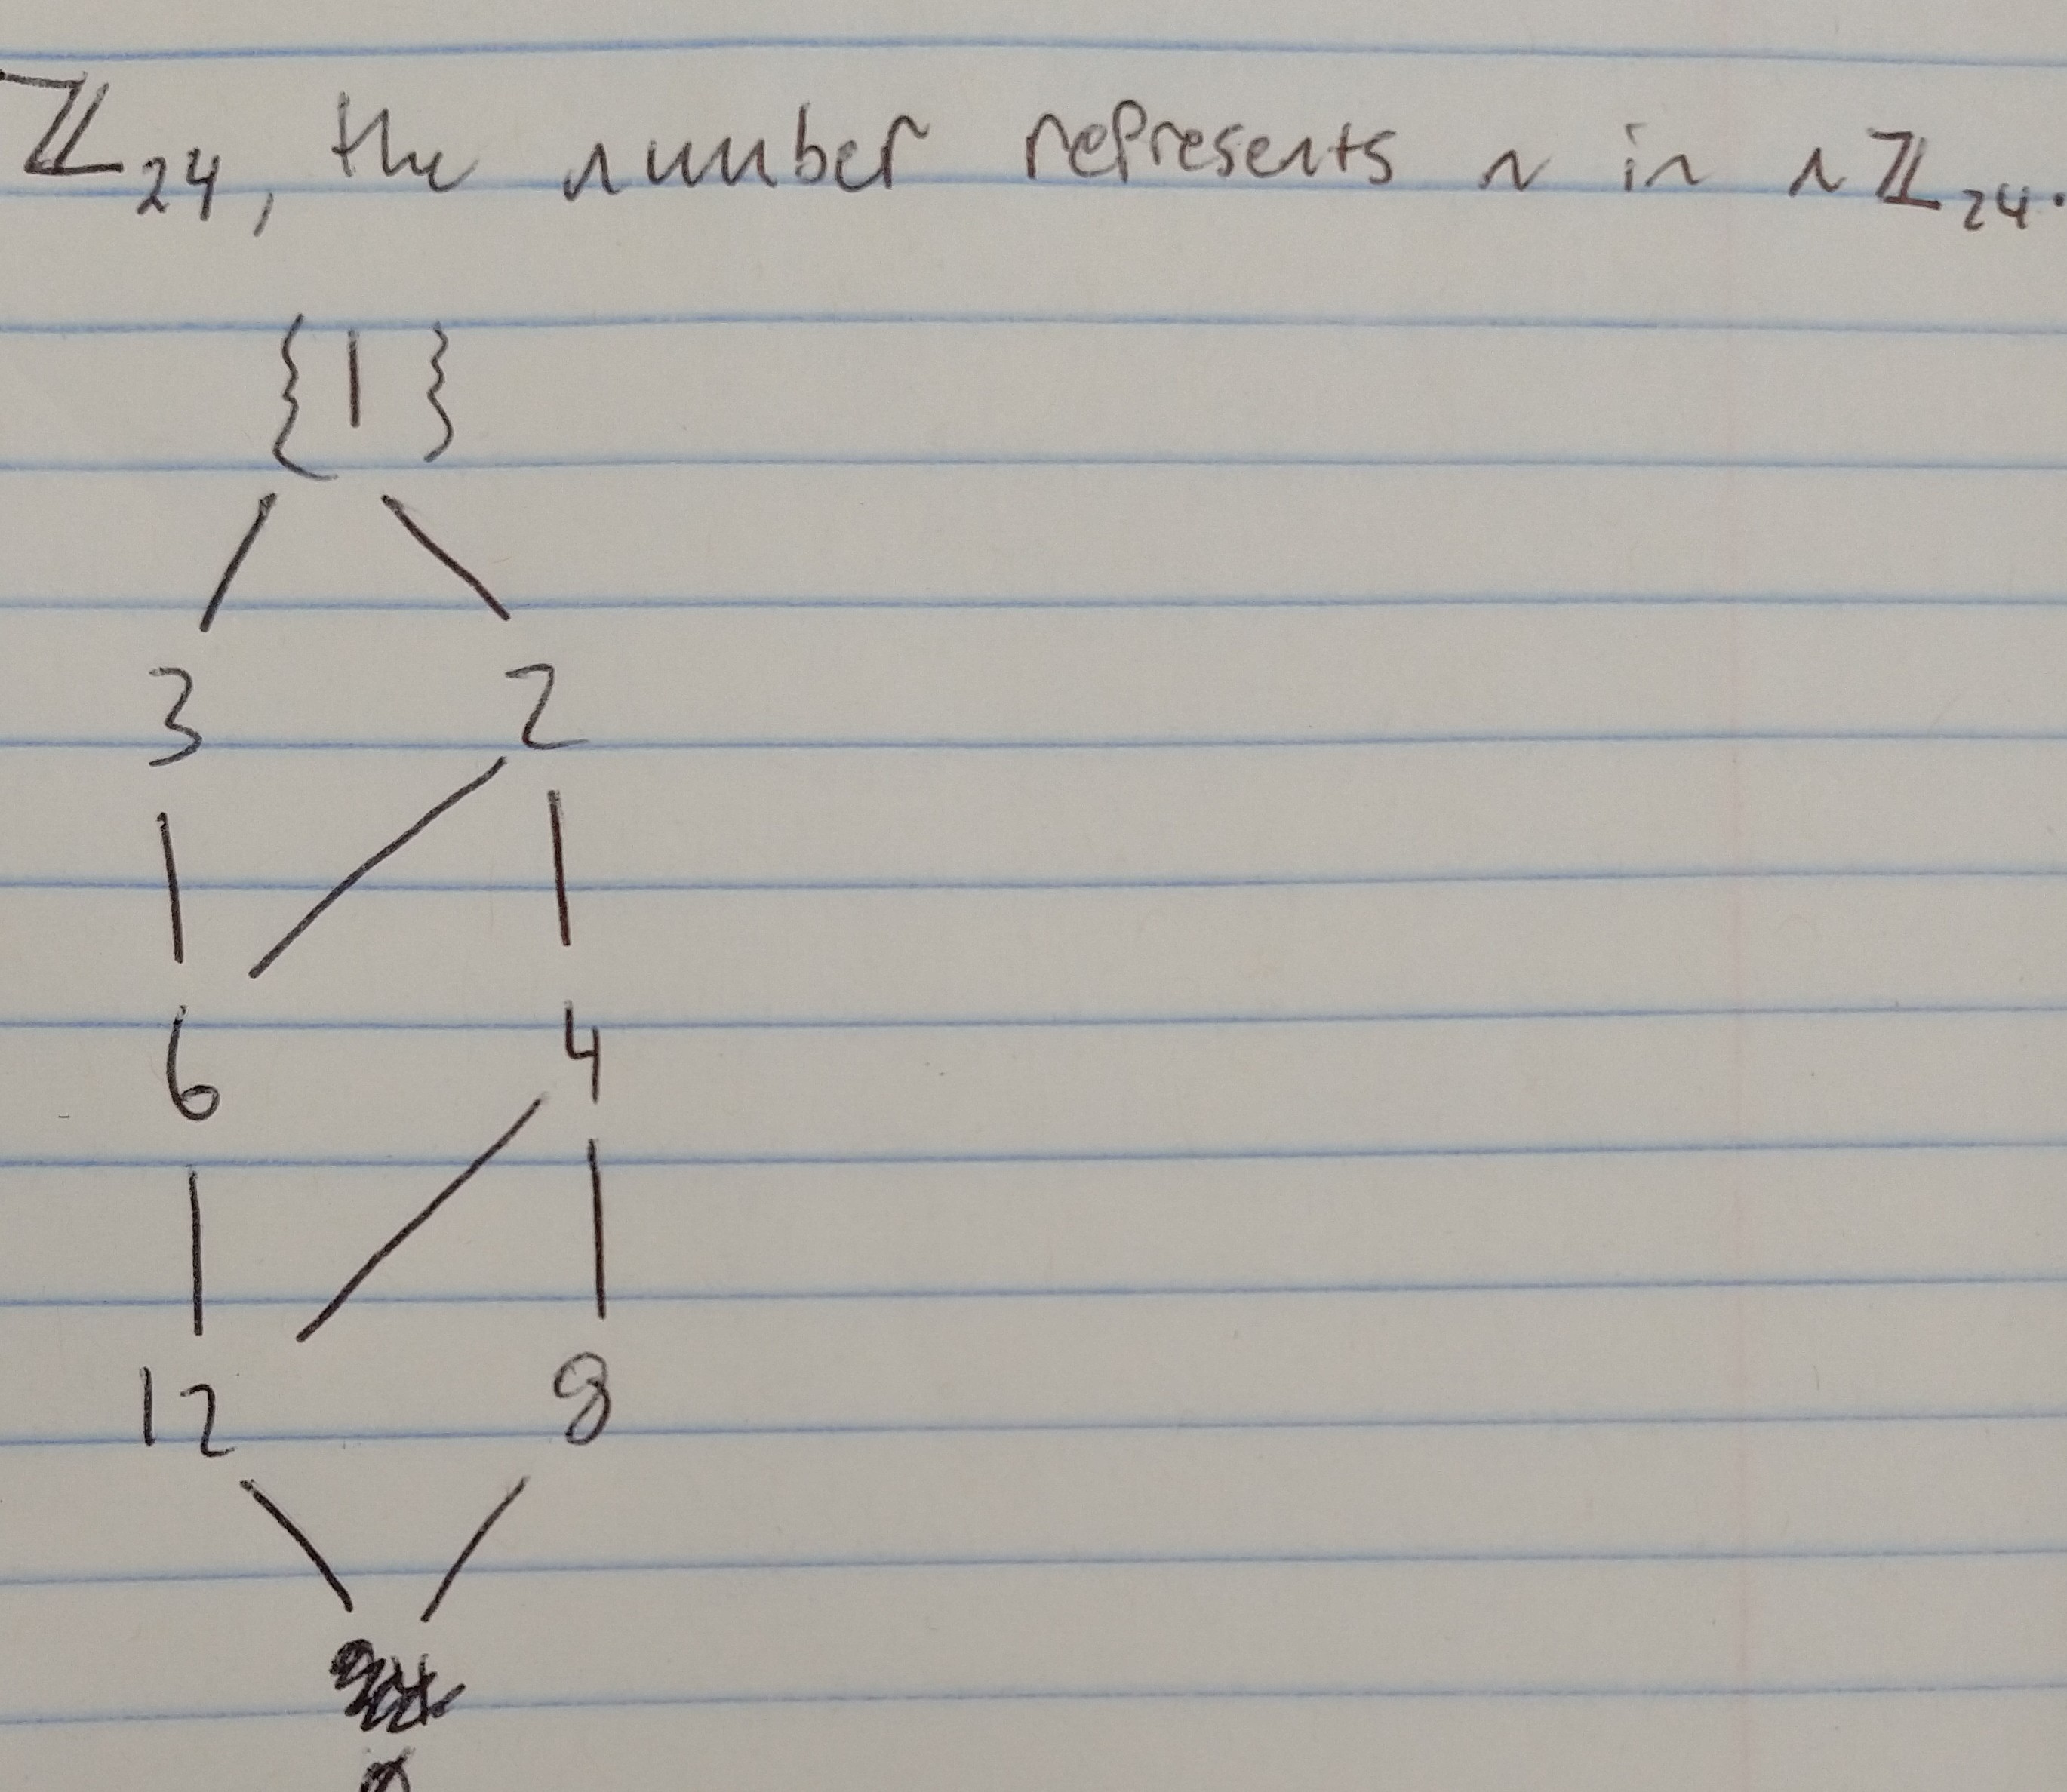 ℤ₂₄, the number represents n in nℤ₂₄.
{1}
3 2
6 4
12 8